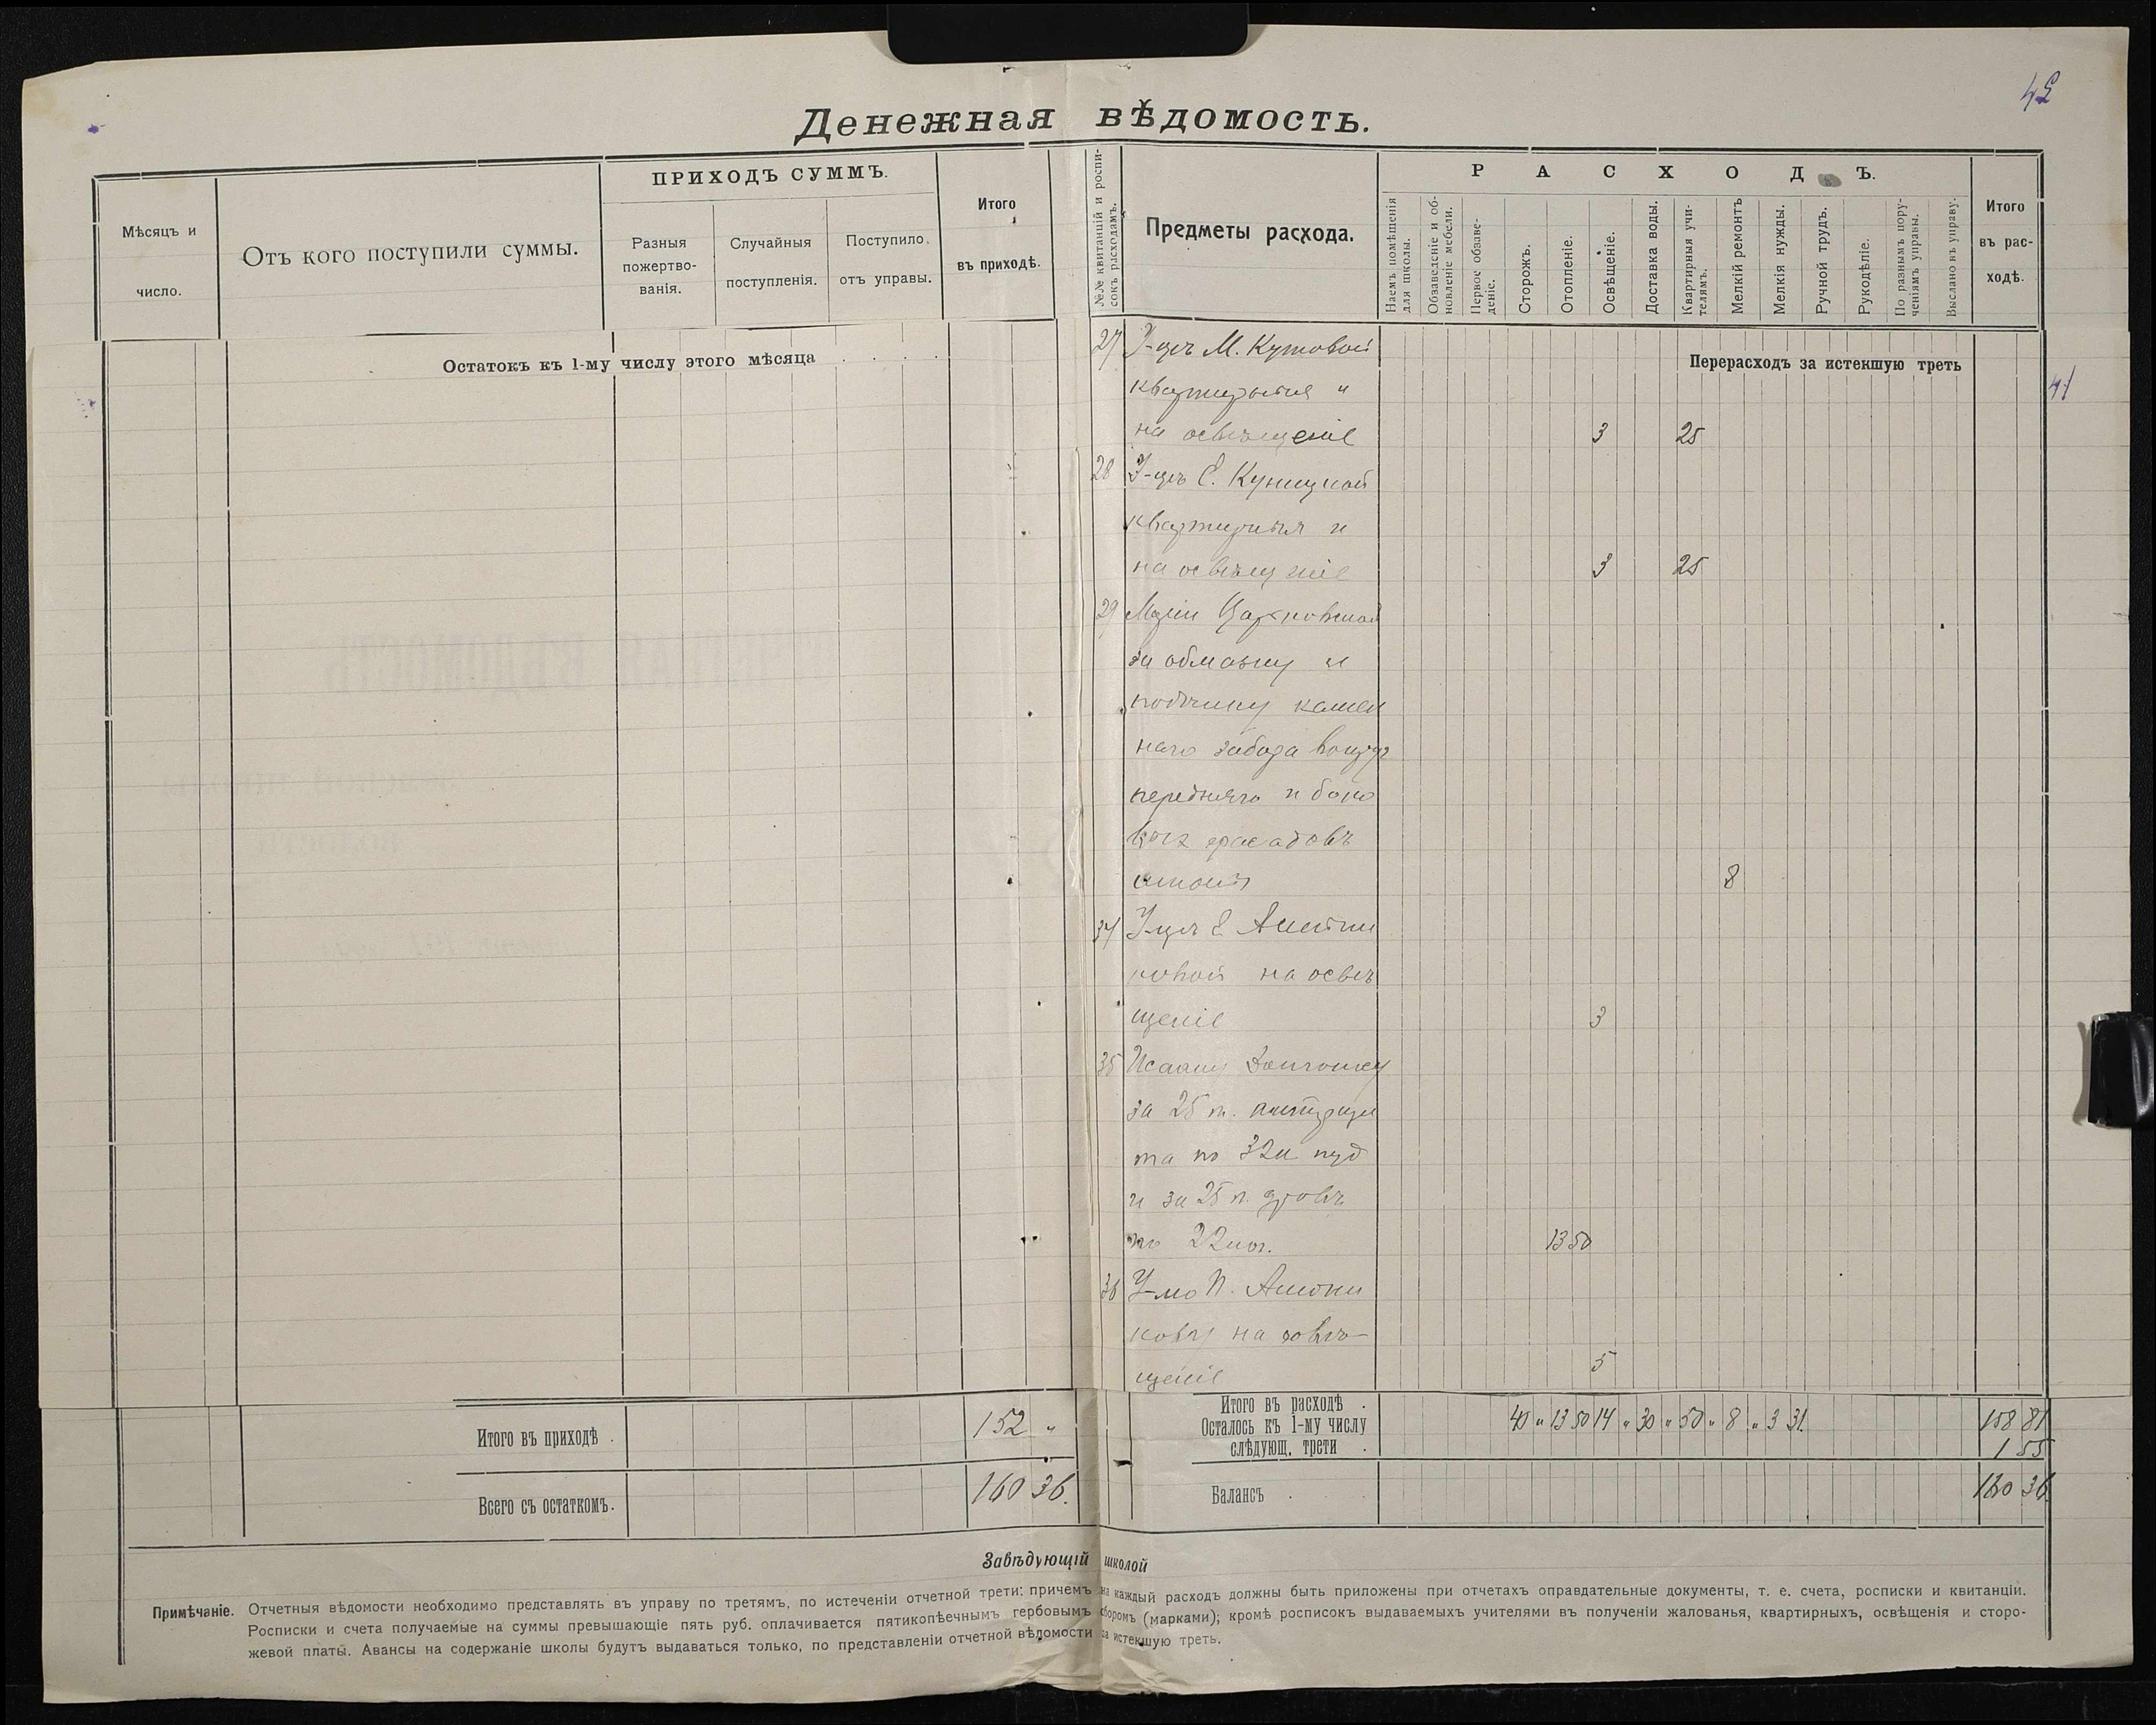 42
Денежная вѣдомость.
Мѣсяцъ и число.
Отъ кого поступили суммы.
ПРИХОДЪ СУММЪ.
Разныя пожертво-
ванія.
Случайныя поступленія.
Поступило отъ управы.
Итого въ приходѣ.
№№ квитанцій и роспи-
сокъ расходамъ.
Предметы расхода.
РАСХОДЪ.
Наемъ помѣщенія для школы.
Обзаведеніе и об-
новленіе мебели.
Первое обзаве-
деніе.
Сторожъ.
Отопленіе.
Освѣщеніе.
Доставка воды.
Квартирныя учи-
телямъ.
Мелкій ремонтъ
Мелкія нужды.
Ручной трудъ.
Рукодѣліе.
По разнымъ пору-
ченіямъ управы.
Выслано въ управу.
Итого въ рас-
ходѣ.
Остатокъ къ 1-му числу этого мѣсяца . . . .
Перерасходъ за истекшую треть
41
27 У-цѣ М. Кутовой
квартирныя и
на освѣщеніе 3 25
28 У-цѣ Е. Куницкой
квартирныя и
на освѣщеніе 3 25
29 Маріи
за обмазку и
камен
наго забора
передняго и боко
выхъ фасадовъ
8
34 У-цѣ Е Анти
ковой на освѣ
щеніе 3
35 Исааку
за 25 п. антраци
та по 32 к пуд
и за 25 п. дровъ
по 22 коп. 13 50
36 У-лю П.
кову на освѣ-
щеніе 5
Итого въ приходѣ . 152 „
Всего съ остаткомъ. 160 36.
Итого въ расходѣ .
Осталось къ 1-му числу
слѣдующ. трети .
40 „ 13 50 14 „ 30 „ 50 „ 8 „ 3 31. 158 81
1 55
Балансъ . 160 36.
Завѣдующій школой
Примѣчаніе. Отчетныя вѣдомости необходимо представлять въ управу по третямъ, по истеченіи отчетной трети: причемъ на каждый расходъ должны быть приложены при отчетахъ оправдательные документы, т. е. счета, росписки и квитанціи.
Росписки и счета получаемые на суммы превышающіе пять руб. оплачивается пятикопѣечнымъ гербовымъ сборомъ (марками); кромѣ росписокъ выдаваемыхъ учителями въ полученіи жалованья, квартирныхъ, освѣщенія и сторо-
жевой платы. Авансы на содержаніе школы будутъ выдаваться только, по представленіи отчетной вѣдомости за истекшую треть.